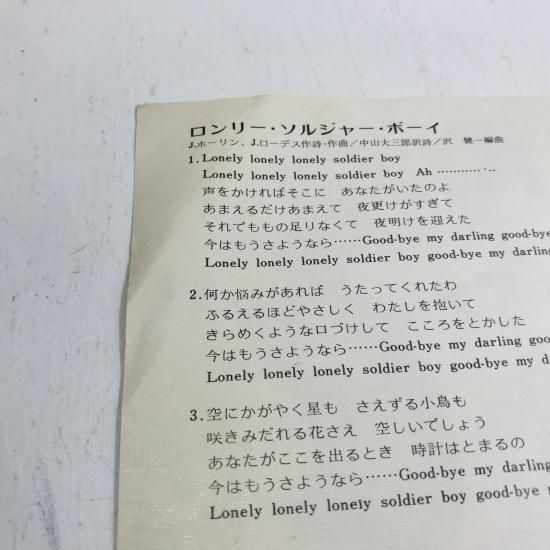 ロンリー・ソルジャー・ボーイ
J.ホーリン、J.ローデス作詩・作曲／中山大三郎訳詩／沢 健一編曲
1. Lonely lonely lonely soldier boy
Lonely lonely lonely soldier boy Ah ………………
声をかければそこに あなたがいたのよ
あまえるだけあまえて 夜更けがすぎて
それでもものたりなくて 夜明けを迎えた
今はもうさようなら……Good-bye my darling good-bye
Lonely lonely lonely soldier boy good-bye my darling
2. 何か悩みがあれば うたってくれたわ
ふるえるほどやさしく わたしを抱いて
きらめくような口づけして こころをとかした
今はもうさようなら……Good-bye my darling
Lonely lonely lonely soldier boy good-bye my
3. 空にかがやく星も さえずる小鳥も
咲きみだれる花さえ 空しいでしょう
あなたがここを出るとき 時計はとまるの
今はもうさようなら……Good-bye my darling
Lonely lonely lonely soldier boy good-bye